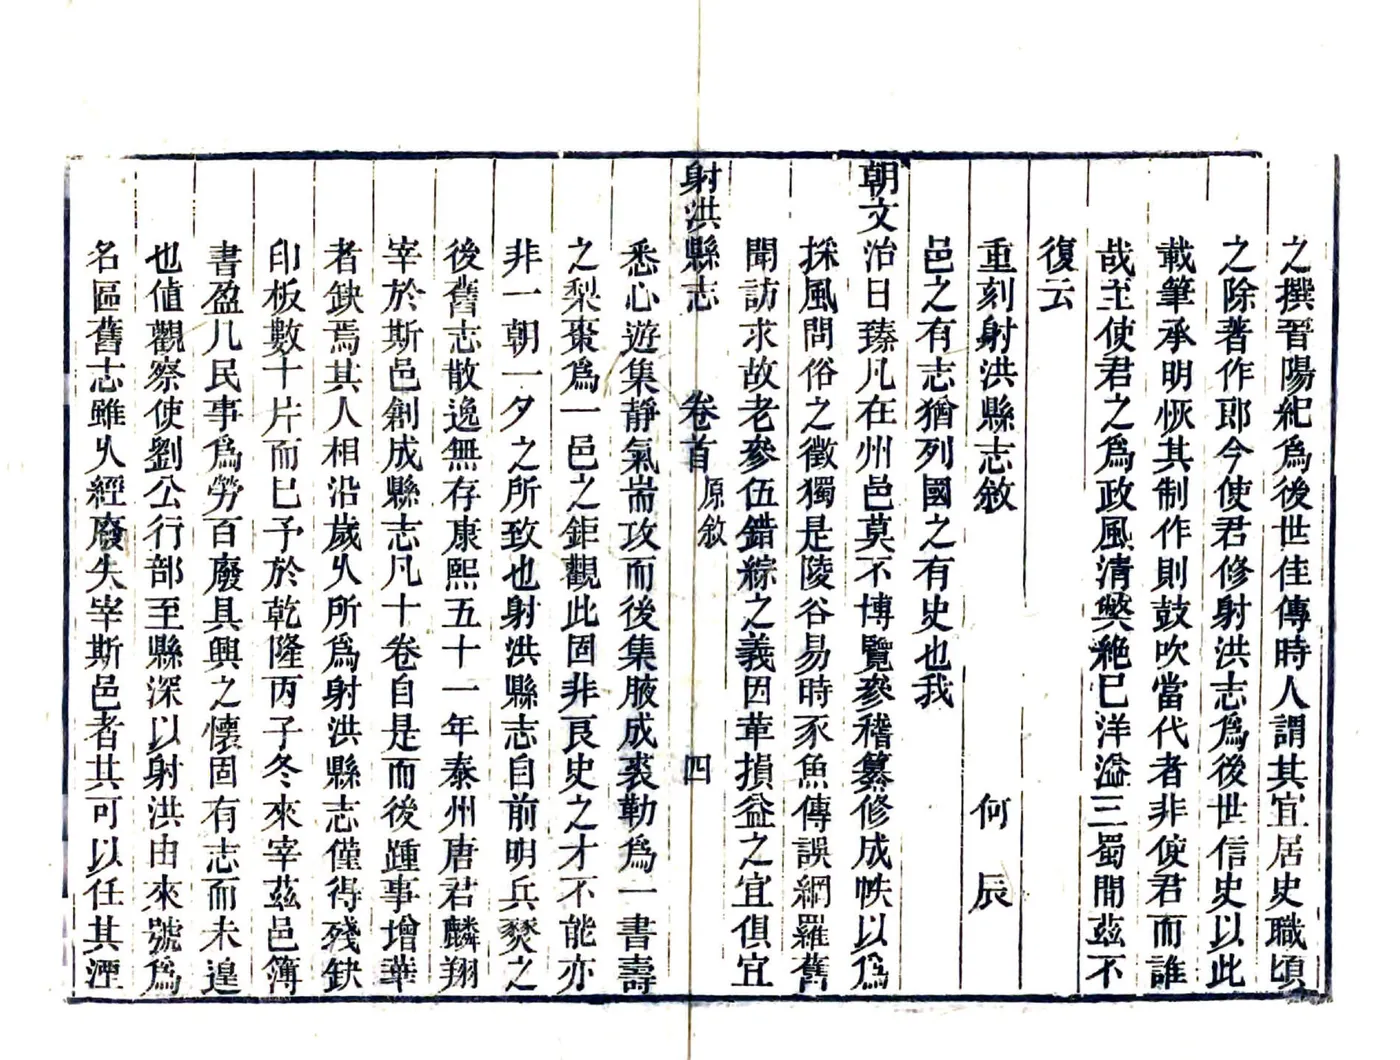 之撰晉陽紀爲後世佳傳時人謂其宜居史職頃
之除著作郎今使君修射洪志爲後世信史以此
載筆承明恢其制作則鼓吹當代者非使君而誰
哉至使君之爲政風清獘絶已洋溢三蜀間茲不
復云
重刻射洪縣志敘 何辰
邑之有志猶列國之有史也我
朝文治日臻凡在州邑莫不博覽參稽纂修成帙以爲
採風問俗之徵獨是陵谷易時豕魚傳誤網羅舊
聞訪求故老參伍錯綜之義因革損益之宜俱宜
射洪縣志 卷首 原敘 四
悉心遊集靜氣耑攻而後集腋成裘勒爲一書壽
之梨棗爲一邑之鉅觀此固非良史之才不能亦
非一朝一夕之所致也射洪縣志自前明兵燹之
後舊志散逸無存康熙五十一年泰州唐君麟翔
宰於斯邑創成縣志凡十卷自是而後踵事增華
者缺焉其人相沿歲久所爲射洪縣志僅得殘缺
印板數十片而已予於乾隆丙子冬來宰茲邑簿
書盈几民事爲勞百廢具興之懷固有志而未遑
也値觀察使劉公行部至縣深以射洪由來號爲
名區舊志雖久經廢失宰斯邑者其可以任其湮